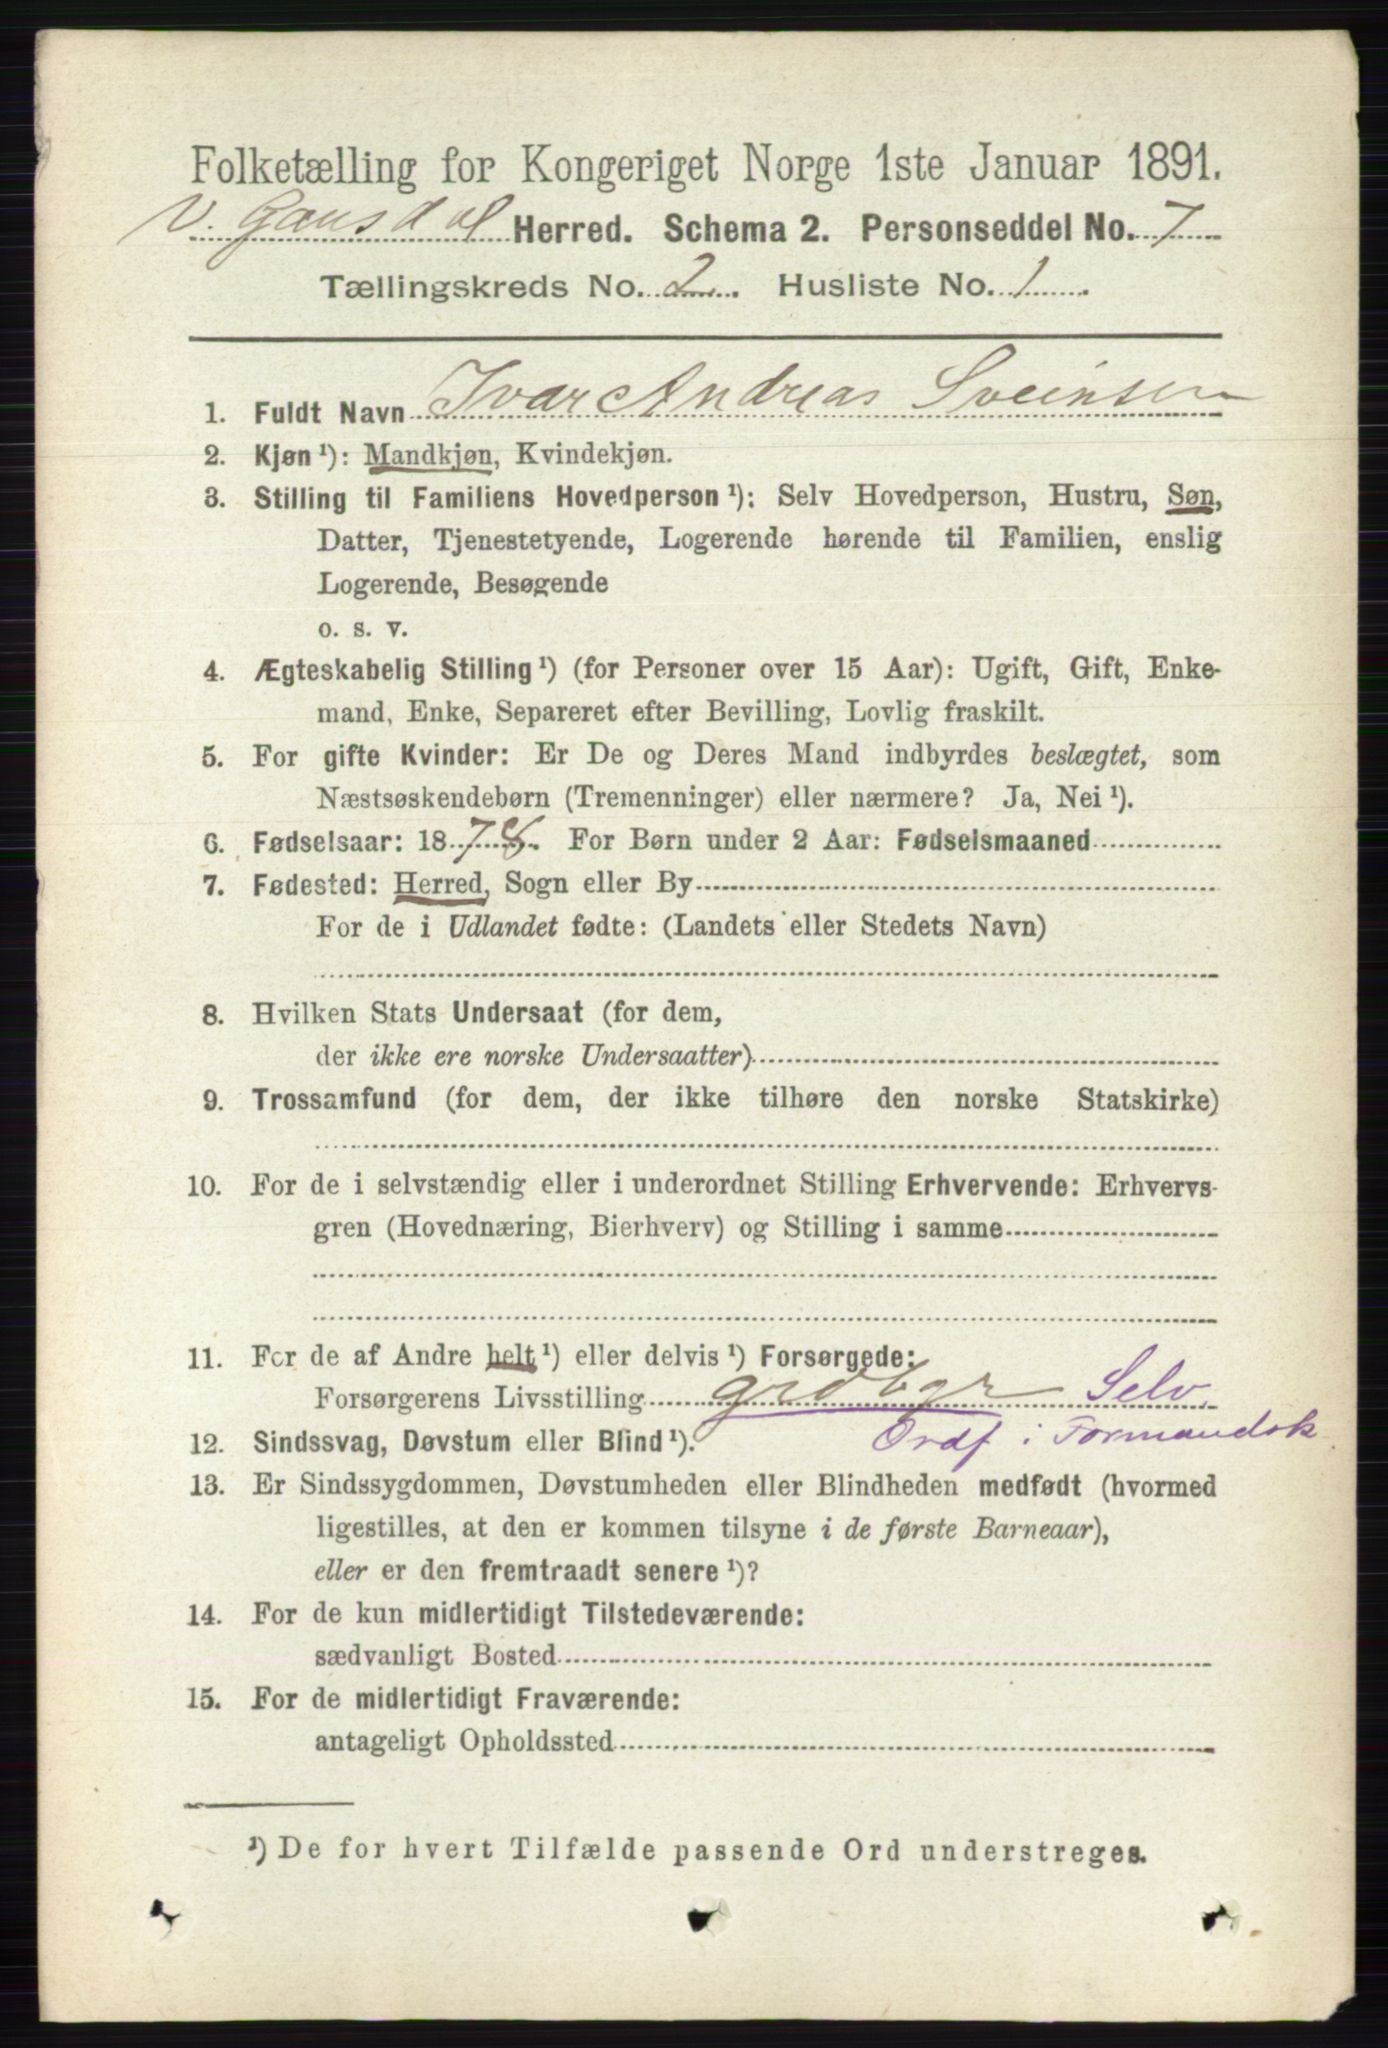 Folketælling for Kongeriget Norge 1ste Januar 1891.
V. Gausdal Herred. Schema 2. Personseddel No. 7
Tællingskreds No. 2. Husliste No. 1
1. Fuldt Navn Ivar Andreas Sveinsen
2. Kjøn ¹): Mandkjøn, Kvindekjøn.
3. Stilling til Familiens Hovedperson ¹): Selv Hovedperson, Hustru, Søn,
Datter, Tjenestetyende, Logerende hørende til Familien, enslig
Logerende, Besøgende
o. s. v.
4. Ægteskabelig Stilling ¹) (for Personer over 15 Aar): Ugift, Gift, Enke-
mand, Enke, Separeret efter Bevilling, Lovlig fraskilt.
5. For gifte Kvinder: Er De og Deres Mand indbyrdes beslægtet, som
Næstsøskendebørn (Tremenninger) eller nærmere? Ja, Nei ¹).
6. Fødselsaar: 1878. For Børn under 2 Aar: Fødselsmaaned
7. Fødested: Herred, Sogn eller By
For de i Udlandet fødte: (Landets eller Stedets Navn)
8. Hvilken Stats Undersaat (for dem,
der ikke ere norske Undersaatter)
9. Trossamfund (for dem, der ikke tilhøre den norske Statskirke)
10. For de i selvstændig eller i underordnet Stilling Erhvervende: Erhvervs-
gren (Hovednæring, Bierhverv) og Stilling i samme
11. For de af Andre helt ¹) eller delvis ¹) Forsørgede:
Forsørgerens Livsstilling grdbgr Selv.
12. Sindssvag, Døvstum eller Blind ¹). Ordf i Formandsk
13. Er Sindssygdommen, Døvstumheden eller Blindheden medfødt (hvormed
ligestilles, at den er kommen tilsyne i de første Barneaar),
eller er den fremtraadt senere ¹)?
14. For de kun midlertidigt Tilstedeværende:
sædvanligt Bosted
15. For de midlertidigt Fraværende:
antageligt Opholdssted
¹) De for hvert Tilfælde passende Ord understreges.